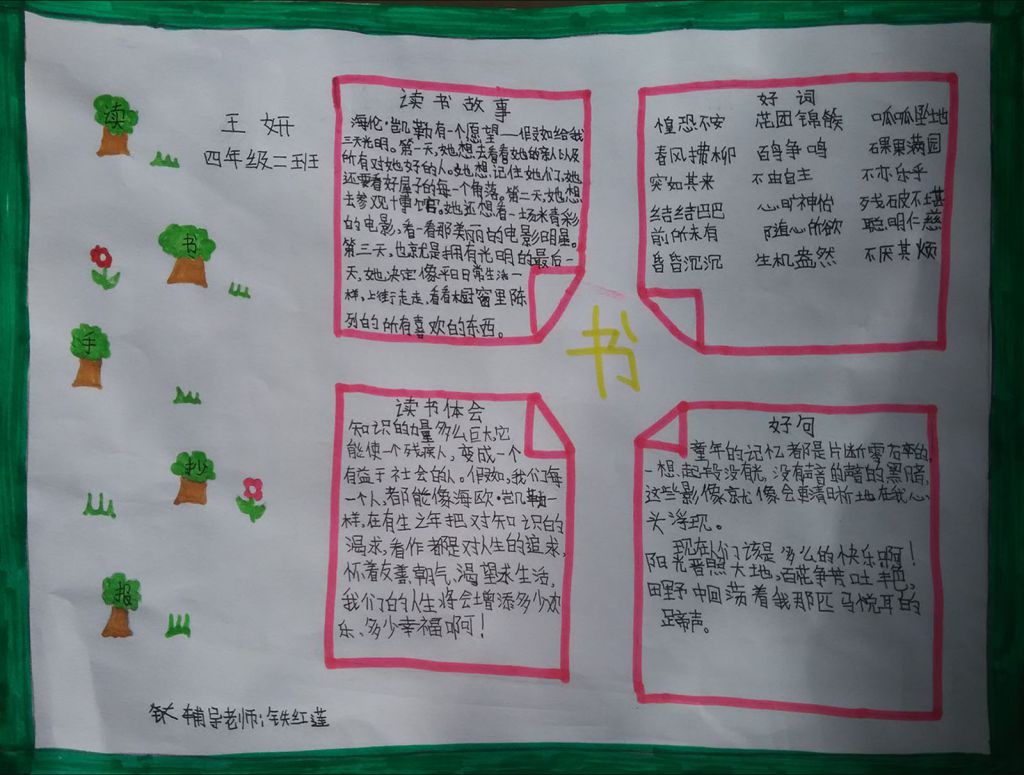 读
书
手
抄
报
王妍
四年级二班
读书故事
海伦·凯勒有一个愿望——假如给我
三天光明。第一天,她想去看看她的亲人以及
所有对她好的人。她想记住她们,她
还要看好屋子的每一个角落。第二天,她想
去参观博物馆。她还想看一场米青彩
的电影,看一看那美丽的电影明星。
第三天,也就是拥有光明的最后一
天,她决定像平日日常生活一
样,上街走走,看看橱窗里陈
列的所有喜欢的东西。
好词
惶恐不安 花团锦簇 呱呱坠地
春风拂柳 百鸟争鸣 硕果满园
突如其来 不由自主 不亦乐乎
结结巴巴 心旷神怡 残破不堪
前所未有 随心所欲 聪明仁慈
昏昏沉沉 生机盎然 不厌其烦
书
读书体会
知识的力量多么巨大,它
能使一个残疾人,变成一个
有益于社会的人。假如,我们每
一个人都能像海欧·凯勒一
样,在有生之年把对知识的
渴求,看作都是对人生的追求,
怀着友善、朝气、渴望来生活,
我们的人生将会增添多少欢
乐、多少幸福啊!
好句
童年的记忆都是片断零石率的,
一想起没有光,没有声音的
这些影像就像会更清晰地在我心
头浮现。
现在人们该是多么的快乐啊!
阳光普照大地,百花争芳吐艳,
田野中回荡着我那匹马悦耳的
蹄声。
辅导老师:铁红莲